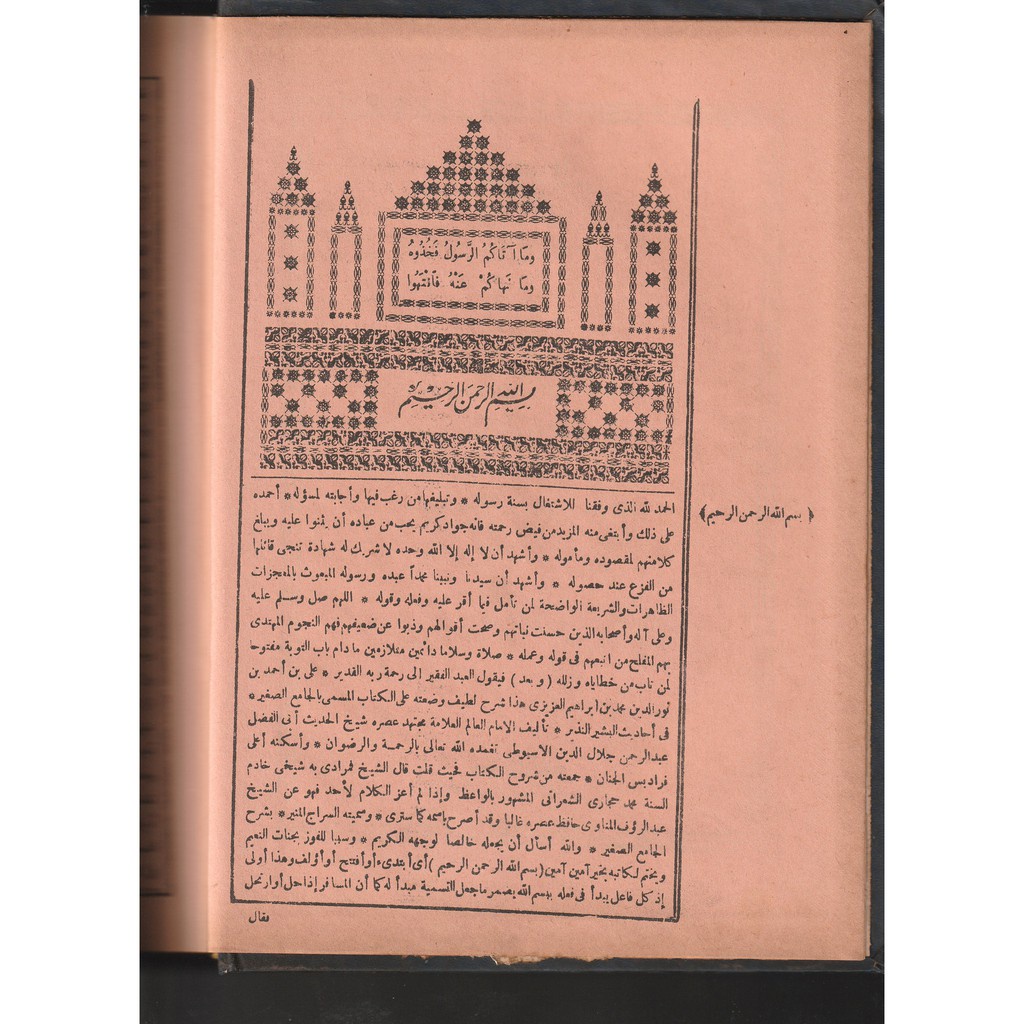 وما آتاكم الرسول فخذوه
وما نهاكم عنه فانتهوا
بسم الله الرحمن الرحيم
الحمد لله الذى وفقنا للاشتغال بسنة رسوله * وتبليغها من رغب فيها وأجابته لمسؤله * أحمده
على ذلك وأبتغى منه المزيد من فيض رحمته فانه جواد كريم يحب من عباده أن يثنوا عليه ويبلغ
كلا منهم لمقصوده ومأموله * وأشهد أن لا إله إلا الله وحده لا شريك له شهادة تنجى قائلها
من الفزع عند حصوله * وأشهد أن سيدنا ونبينا محمداً عبده ورسوله المبعوث بالمعجزات
الظاهرات والشريعة الواضحة لمن تأمل فيما أقر عليه وفعله وقوله * اللهم صل وسلم عليه
وعلى آله وأصحابه الذين حسنت نياتهم وصحت أقوالهم وذبوا عن ضعيفهم فهم النجوم المهتدى
بهم المفلح من اتبعهم فى قوله وعمله * صلاة وسلاما دائمين متلازمين ما دام باب التوبة مفتوحا
لمن تاب من خطاياه وزلله (وبعد) فيقول العبد الفقير الى رحمة ربه القدير * على بن أحمد بن
نور الدين محمد بن إبراهيم العزيزى هذا شرح لطيف وضعته على الكتاب المسمى بالجامع الصغير *
فى أحاديث البشير النذير * تأليف الامام العالم العلامة مجتهد عصره شيخ الحديث أبى الفضل
عبد الرحمن جلال الدين الاسيوطى تغمده الله تعالى بالرحمة والرضوان * وأسكنه أعلى
فراديس الجنان * جمعته من شروح الكتاب فحيث قلت قال الشيخ فمرادى به شيخى خادم
السنة محمد حجازى الشعرانى المشهور بالواعظ وإذا لم أعز الكلام لأحد فهو عن الشيخ
عبد الرؤف المناوى حافظ عصره غالبا وقد أصرح باسمه كما سترى * وسميته السراج المنير * بشرح
الجامع الصغير * والله أسأل أن يجعله خالصا لوجهه الكريم * وسببا للفوز بجنات النعيم
ويختم لكاتبه بخير آمين آمين (بسم الله الرحمن الرحيم) أى أبتدىء أو أفتتح أو أؤلف وهذا أولى
إذ كل فاعل يبدأ فى فعله ببسم الله يضمر ما جعل التسمية مبدأ له كما أن المسافر إذا حل أو ارتحل
فقال
﴿ بسم الله الرحمن الرحيم ﴾